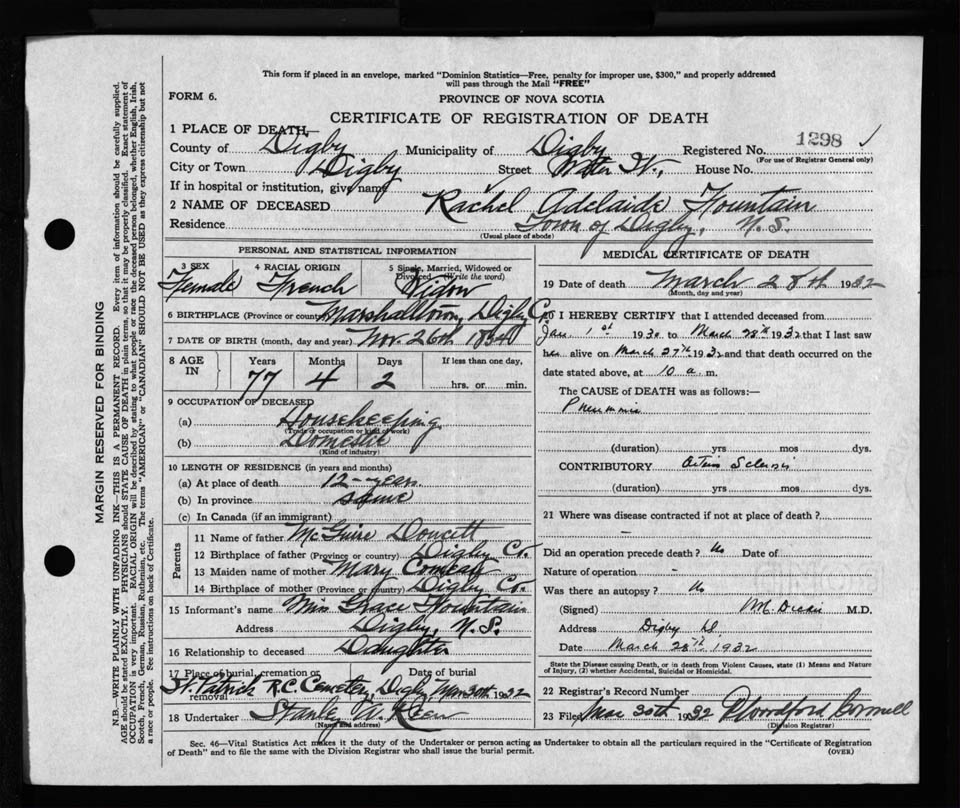 This form if placed in an envelope, marked "Dominion Statistics—Free, penalty for improper use, $300," and properly addressed
will pass through the Mail "FREE"
FORM 6.
PROVINCE OF NOVA SCOTIA
CERTIFICATE OF REGISTRATION OF DEATH
1 PLACE OF DEATH—
County of Digby Municipality of Digby Registered No. 1298
(For use of Registrar General only)
City or Town Digby Street Water St., House No.
If in hospital or institution, give name
2 NAME OF DECEASED Rachel Adelaide Fountain
Residence Town of Digby, N.S.
(Usual place of abode)
PERSONAL AND STATISTICAL INFORMATION
3 SEX 4 RACIAL ORIGIN 5 Single, Married, Widowed or
Divorced (Write the word)
Female French Widow
6 BIRTHPLACE (Province or county) Marshalltown, Digby Co.
7 DATE OF BIRTH (month, day and year) Nov. 26th
8 AGE IN Years Months Days If less than one day,
77 4 2 hrs. or min.
9 OCCUPATION OF DECEASED
(a) Housekeeping
(Trade or occupation or kind of work)
(b) Domestic
(Kind of industry)
10 LENGTH OF RESIDENCE (in years and months)
(a) At place of death 12-years
(b) In province same
(c) In Canada (if an immigrant)
Parents
11 Name of father McGuire Doucett
12 Birthplace of father (Province or country) Digby Co.
13 Maiden name of mother Mary Comeau
14 Birthplace of mother (Province or country) Digby Co.
15 Informant's name Miss Grace Fountain
Address Digby, N.S.
16 Relationship to deceased Daughter
17 Place of burial, cremation or removal Date of burial
St. Patrick R.C. Cemetery, Digby Mar 30th 1932
18 Undertaker Stanley A.
(Name and address)
MEDICAL CERTIFICATE OF DEATH
19 Date of death March 28th 1932
(Month, day and year)
20 I HEREBY CERTIFY that I attended deceased from
Jan 1st 1930 to March 28th 1932 that I last saw
her alive on March 27th 1932 and that death occurred on the
date stated above, at 10 a. m.
The CAUSE OF DEATH was as follows:
Pneumonia
(duration) yrs mos dys.
CONTRIBUTORY Arterio Sclerosis
(duration) yrs mos dys.
21 Where was disease contracted if not at place of death?
—
Did an operation precede death? No Date of
Nature of operation -
Was there an autopsy? No
(Signed) M.D.
Address Digby
Date March 28th 1932
State the Disease causing Death, or in death from Violent Causes, state (1) Means and Nature
of Injury, (2) whether Accidental, Suicidal or Homicidal.
22 Registrar's Record Number
23 Filed Mar 30th 1932
(Division Registrar)
Sec. 46—Vital Statistics Act makes it the duty of the Undertaker or person acting as Undertaker to obtain all the particulars required in the "Certificate of Registration
of Death" and to file the same with the Division Registrar who shall issue the burial permit. (OVER)
MARGIN RESERVED FOR BINDING
N.B.—WRITE PLAINLY WITH UNFADING INK—THIS IS A PERMANENT RECORD. Every item of information should be carefully supplied.
AGE should be stated EXACTLY. PHYSICIANS should STATE CAUSE OF DEATH in plain terms, so that it may be properly classified. Exact statement of
OCCUPATION is very important. RACIAL ORIGIN will be described by stating to what people or race the deceased person belonged, whether English, Irish,
Scotch, French, German, Russian, Ruthenian, etc. The terms "AMERICAN" or "CANADIAN" SHOULD NOT BE USED as they express citizenship but not
a race or people. See instructions on back of Certificate.